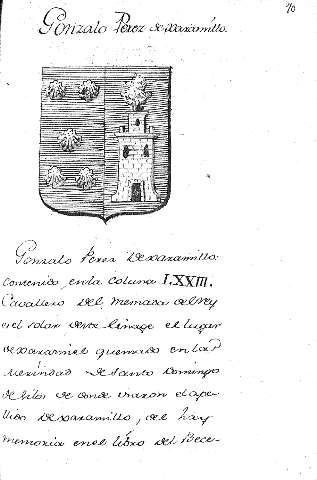 70
Gonzalo Perez de xaramillo.
Gonzalo Perez De xaramillo.
contenido en la coluna LXXIII.
Cavallero del mesnada del rey
en el solar deste linage el lugar
de xaramiel quemado en la
Merindad de Santo Domingo
de Silos de donde viaron el ape-
llido de xaramillo, del hay
memoria en el libro del Bece-